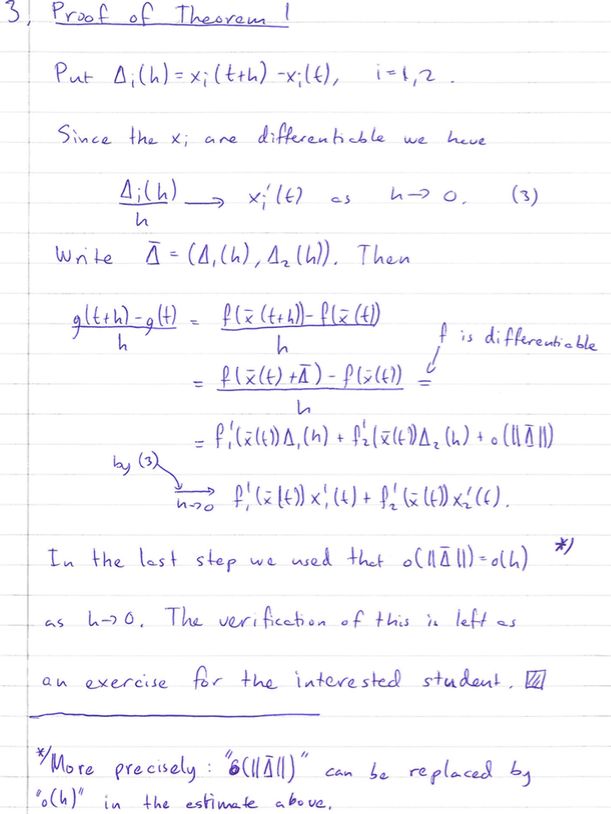 3. Proof of Theorem 1
Put Δᵢ(h) = xᵢ(t+h) - xᵢ(t), i = 1,2.
Since the xᵢ are differentiable we have
Δᵢ(h)/h → xᵢ'(t) as h → 0. (3)
Write Δ̄ = (Δ₁(h), Δ₂(h)). Then
(g(t+h) - g(t))/h = (f(x̄(t+h)) - f(x̄(t)))/h
f is differentiable
= (f(x̄(t) + Δ̄) - f(x̄(t)))/h =
= f₁'(x̄(t))Δ₁(h) + f₂'(x̄(t))Δ₂(h) + o(||Δ̄||)
by (3)
→ h→0 f₁'(x̄(t)) x₁'(t) + f₂'(x̄(t)) x₂'(t).
In the last step we used that o(||Δ̄||) = o(h) *)
as h → 0. The verification of this is left as
an exercise for the interested student.
*) More precisely: "o(||Δ̄||)" can be replaced by
"o(h)" in the estimate above.